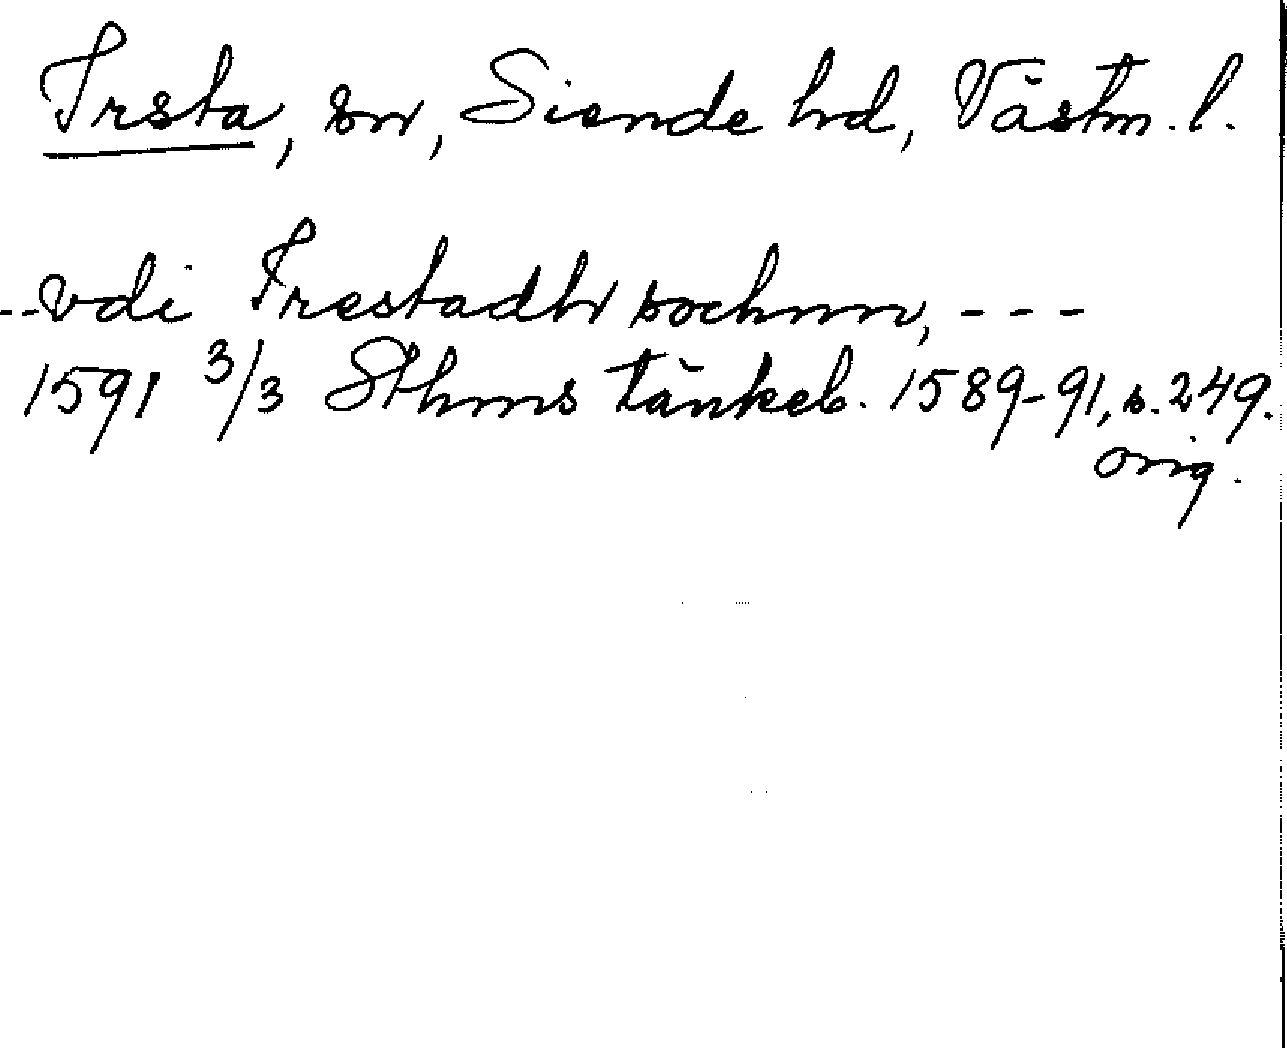 Irsta, sn, Siende hd, Västm. l.
--vdi Irestadh sochnn, ---
1591 3/3 Sthms tänkeb. 1589-91, s. 249.
orig.